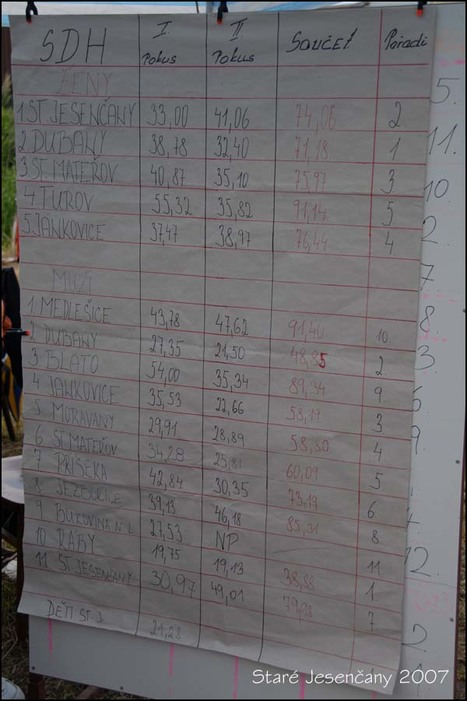 SDH I. Pokus II Pokus SOUČET Pořadí
ŽENY
1 ST JESENČANY 33,00 41,06 74,06 2
2 DUBANY 38,78 32,40 71,18 1
3 ST. MATEŘOV 40,87 35,10 75,97 3
4 TUROV 55,32 35,82 91,14 5
5 JANKOVICE 37,47 38,97 76,44 4
MUŽI
1 MEDLEŠICE 43,78 47,62 91,40 10
2 DUBANY 27,35 21,50 48,85 2
3 BLATO 54,00 35,34 89,34 9
4 JANKOVICE 35,53 22,66 58,19 3
5 MORAVANY 29,91 28,89 58,80 4
6 ST MATEŘOV 34,28 25,81 60,09 5
7 42,84 30,35 73,19 6
8 39,13 46,18 85,31 8
9 BUKOVINA 27,53 NP 11
10 RÁBY 19,75 19,13 38,88 1
11 ST JESENČANY 30,97 49,01 79,98 7
DĚTI ST. J. 21,28
5.
11.
10.
2.
7.
8.
3.
12.
2.
Staré Jesenčany 2007